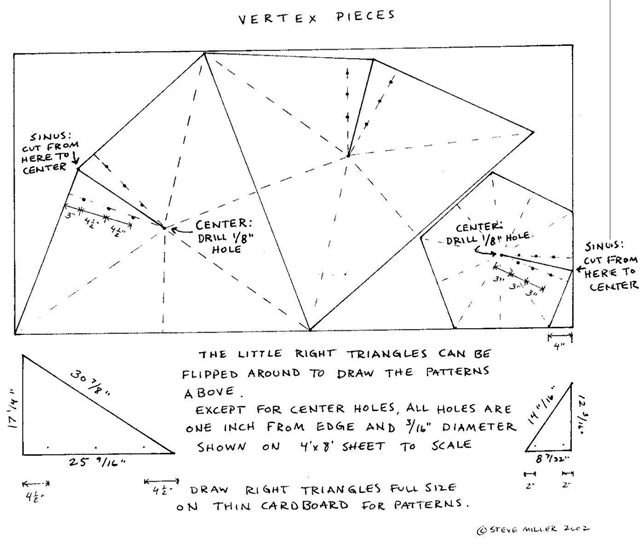 VERTEX PIECES
SINUS:
CUT FROM
HERE TO
CENTER
3"
4½"
4½"
CENTER:
DRILL 1/8"
HOLE
CENTER:
DRILL 1/8"
HOLE
3"
3"
3"
SINUS:
CUT FROM
HERE TO
CENTER
4"
17 1/4"
30 7/8"
25 9/16"
4½"
4½"
THE LITTLE RIGHT TRIANGLES CAN BE
FLIPPED AROUND TO DRAW THE PATTERNS
ABOVE.
EXCEPT FOR CENTER HOLES, ALL HOLES ARE
ONE INCH FROM EDGE AND 3/16" DIAMETER
SHOWN ON 4'x8' SHEET TO SCALE
14 11/16"
8 7/32"
2"
2"
DRAW RIGHT TRIANGLES FULL SIZE
ON THIN CARDBOARD FOR PATTERNS.
© STEVE MILLER 2002